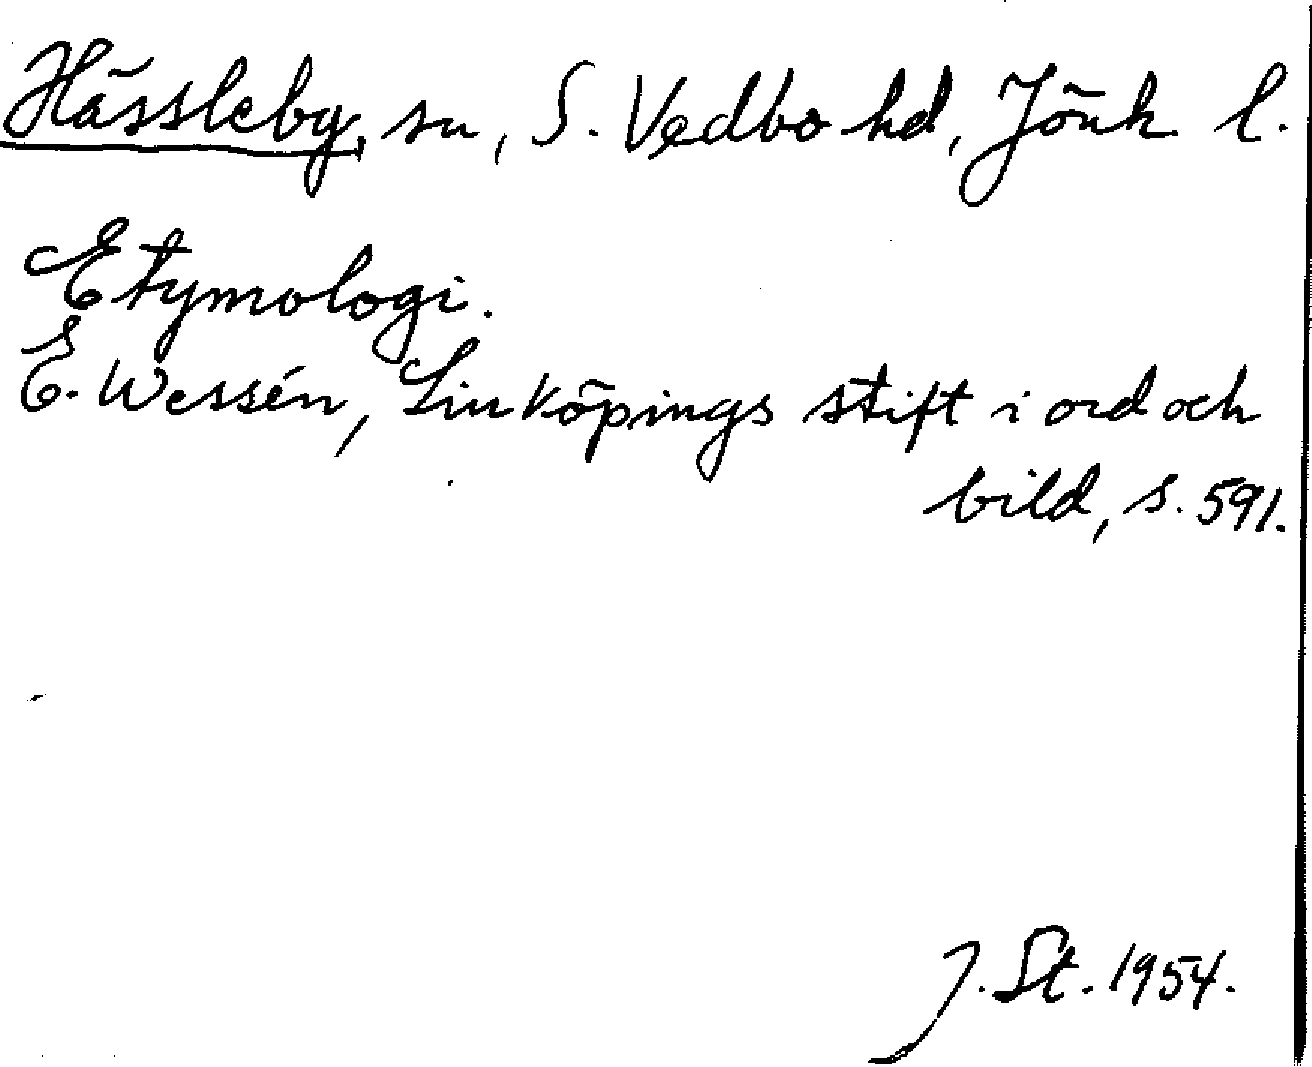 Hässleby, sn, S. Vedbo hd, Jönk l.
Etymologi.
E. Wessén, Linköpings stift i ord och
bild, s. 591.
J. St. 1954.